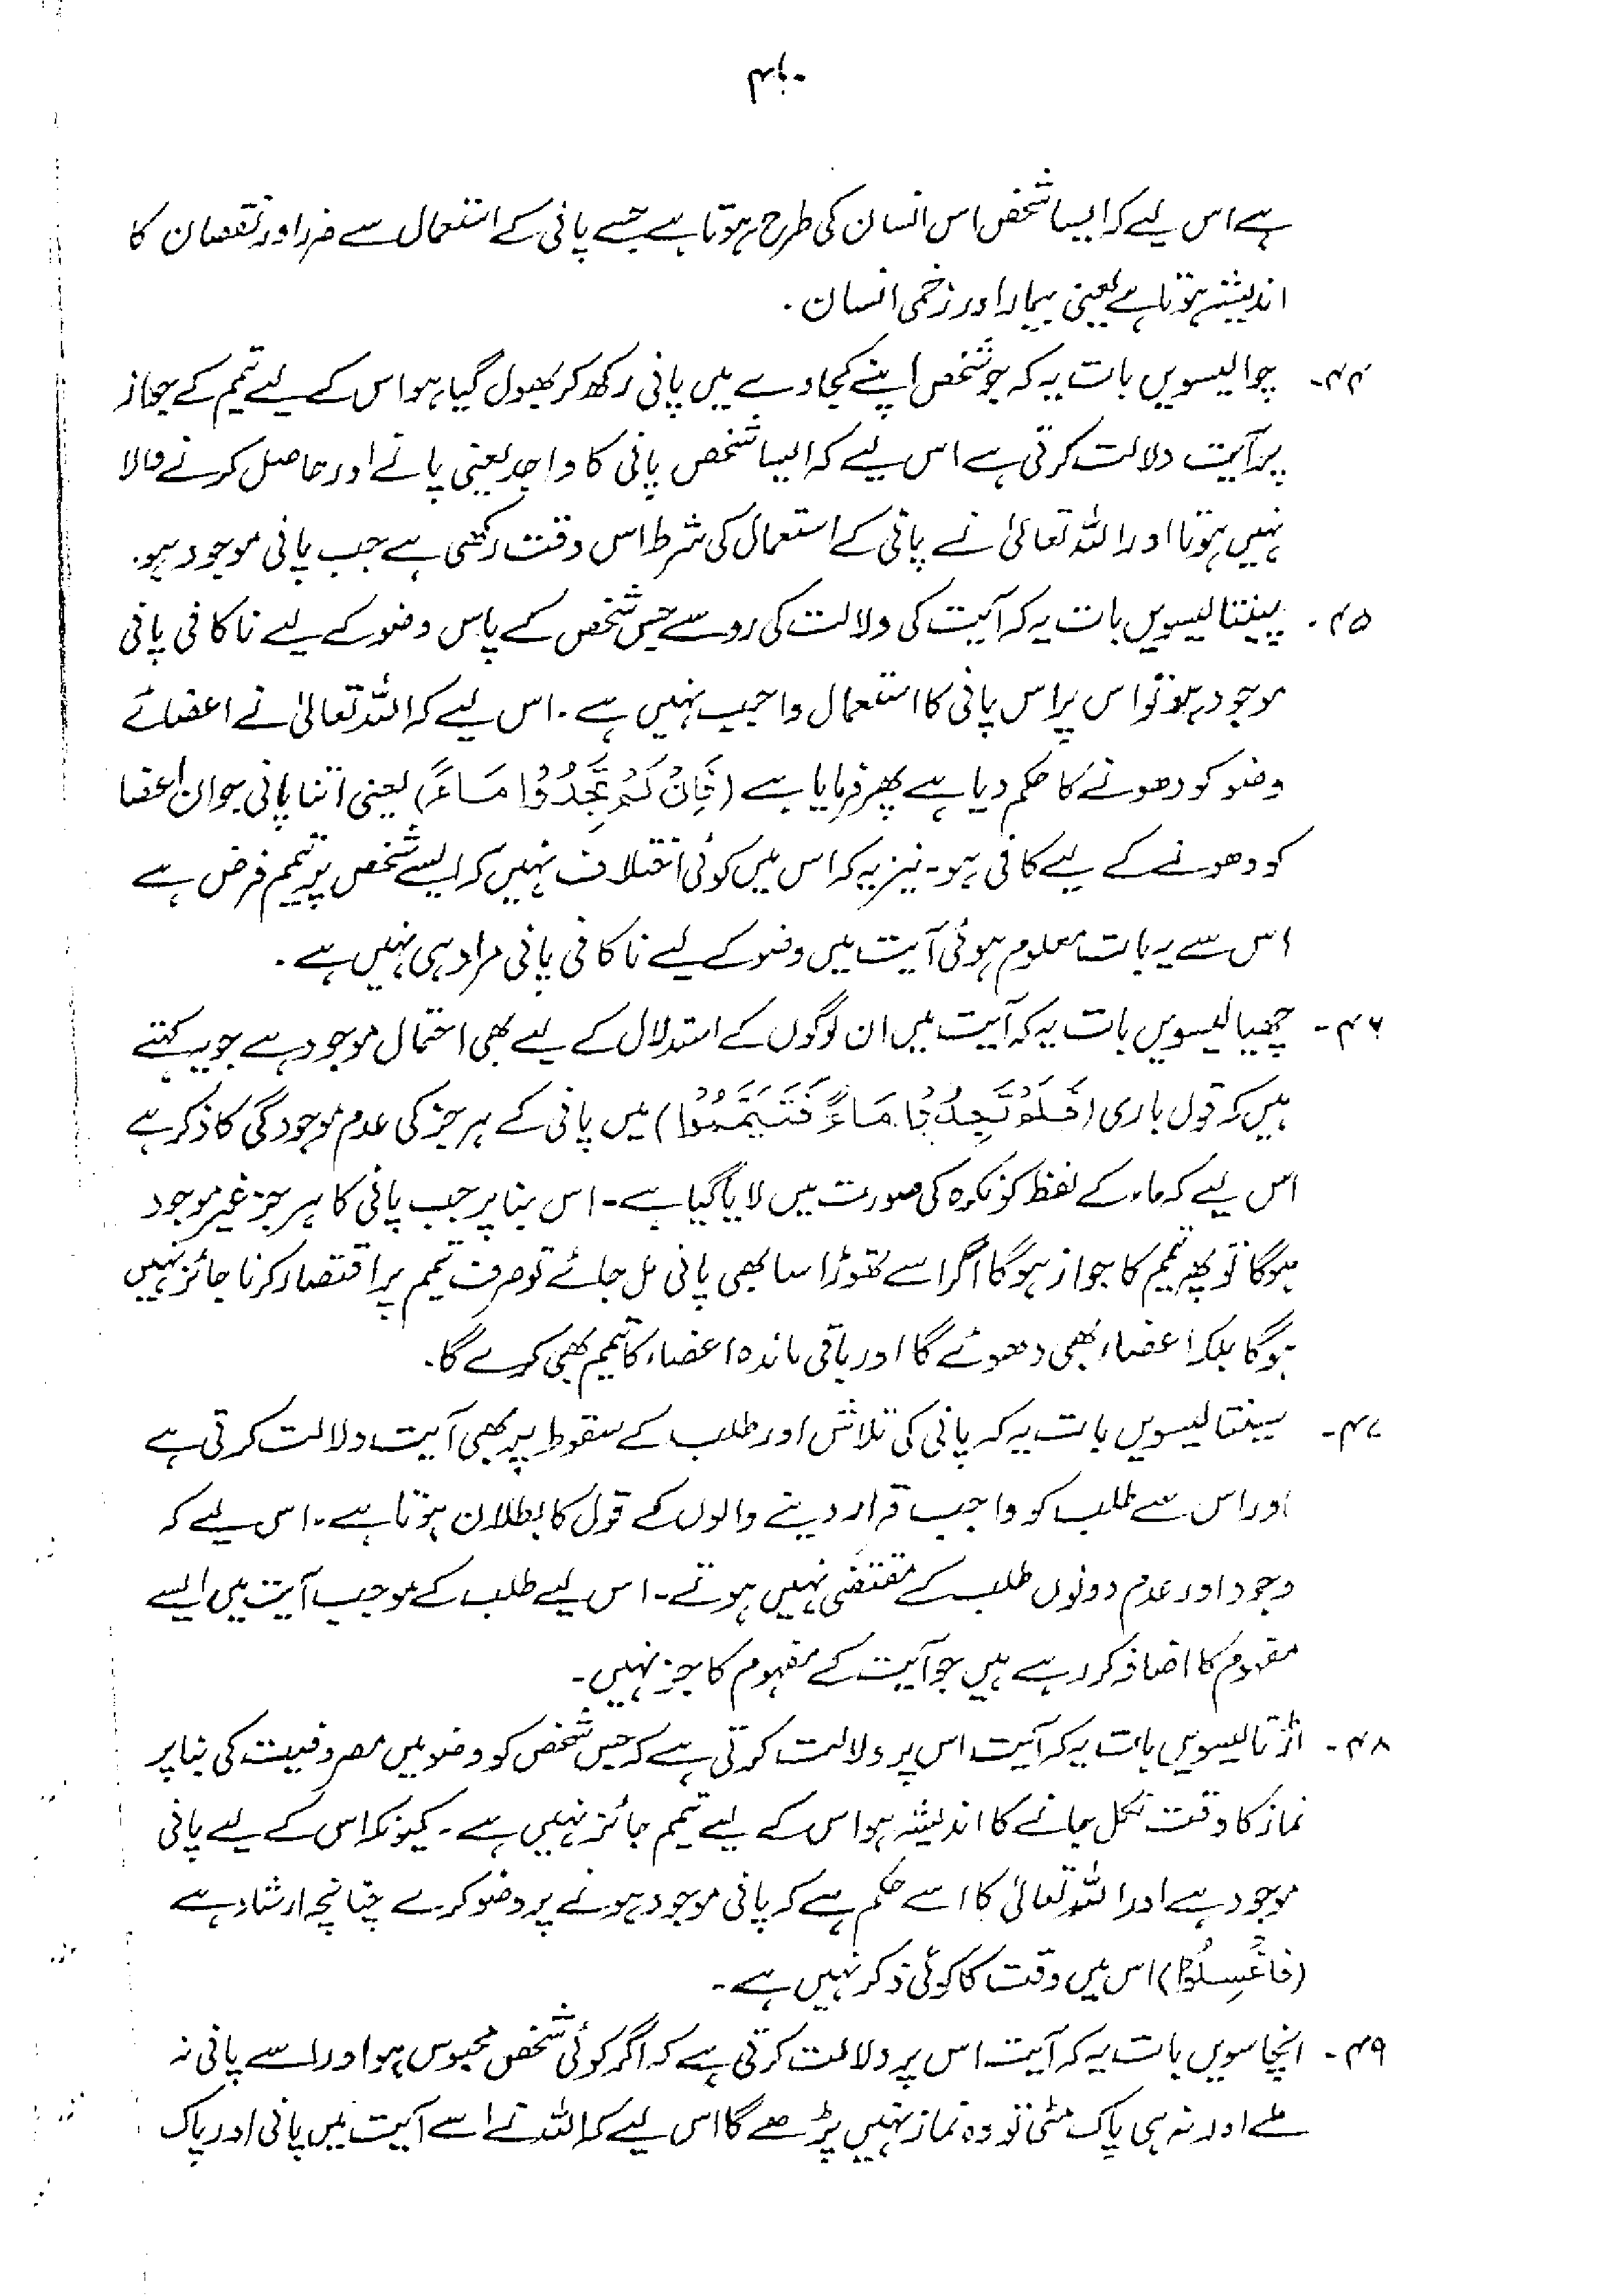 ۴۶۰
ہے اس لیے کہ ایسا شخص اس انسان کی طرح ہوتا ہے جسے پانی کے استعمال سے ضرر اور نقصان کا
اندیشہ ہوتا ہے یعنی بیمار اور زخمی انسان ۔
۴۴۔ چوالیسویں بات یہ کہ جو شخص اپنے کجاوے میں پانی رکھ کر بھول گیا ہو اس کے لیے تیمم کے جواز
پر آیت دلالت کرتی ہے اس لیے کہ ایسا شخص پانی کا واجد یعنی پانے اور حاصل کرنے والا
نہیں ہوتا اور اللہ تعالیٰ نے پانی کے استعمال کی شرط اس وقت رکھی ہے جب پانی موجود ہو۔
۴۵۔ پینتالیسویں بات یہ کہ آیت کی دلالت کی رو سے جس شخص کے پاس وضو کے لیے ناکافی پانی
موجود ہو تو اس پر اس پانی کا استعمال واجب نہیں ہے ۔ اس لیے کہ اللہ تعالیٰ نے اعضائے
وضو کو دھونے کا حکم دیا ہے پھر فرمایا ہے (فَاِنْ لَمْ تَجِدُوْا مَاءً) یعنی اتنا پانی جو ان اعضا
کو دھونے کے لیے کافی ہو۔ نیز یہ کہ اس میں کوئی اختلاف نہیں کہ ایسے شخص پر تیمم فرض ہے
اس سے یہ بات معلوم ہوئی آیت میں وضو کے لیے ناکافی پانی مراد ہی نہیں ہے ۔
۴۶۔ چھیالیسویں بات یہ کہ آیت میں ان لوگوں کے استدلال کے لیے بھی احتمال موجود ہے جو یہ کہتے
ہیں کہ قول باری (فَلَمْ تَجِدُوْا مَاءً فَتَيَمَّمُوْا) میں پانی کے ہر جز کی عدم موجودگی کا ذکر ہے
اس لیے کہ ماء کے لفظ کو نکرہ کی صورت میں لایا گیا ہے۔ اس بنا پر جب پانی کا ہر جز غیر موجود
ہوگا تو پھر تیمم کا جواز ہوگا اگر اسے تھوڑا سا بھی پانی مل جائے تو صرف تیمم پر اقتصار کرنا جائز نہیں
ہوگا بلکہ اعضاء بھی دھوئے گا اور باقی ماندہ اعضاء کا تیمم بھی کرے گا۔
۴۷۔ سینتالیسویں بات یہ کہ پانی کی تلاش اور طلب کے سقوط پر بھی آیت دلالت کرتی ہے
اور اس سے طلب کو واجب قرار دینے والوں کے قول کا بطلان ہوتا ہے۔ اس لیے کہ
وجود اور عدم دونوں طلب کے مقتضی نہیں ہوتے۔ اس لیے طلب کے موجب آیت میں ایسے
مفہوم کا اضافہ کر رہے ہیں جو آیت کے مفہوم کا جز نہیں۔
۴۸۔ اڑتالیسویں بات یہ کہ آیت اس پر دلالت کرتی ہے کہ جس شخص کو وضو میں مصروفیت کی بنا پر
نماز کا وقت نکل جانے کا اندیشہ ہو اس کے لیے تیمم جائز نہیں ہے ۔ کیونکہ اس کے لیے پانی
موجود ہے اور اللہ تعالیٰ کا اسے حکم ہے کہ پانی موجود ہونے پر وضو کرے چنانچہ ارشاد ہے
(فَاغْسِلُوْا) اس میں وقت کا کوئی ذکر نہیں ہے ۔
۴۹۔ انچاسویں بات یہ کہ آیت اس پر دلالت کرتی ہے کہ اگر کوئی شخص محبوس ہو اور اسے پانی نہ
ملے اور نہ ہی پاک مٹی تو وہ نماز نہیں پڑھے گا اس لیے کہ اللہ نے اسے آیت میں پانی اور پاک